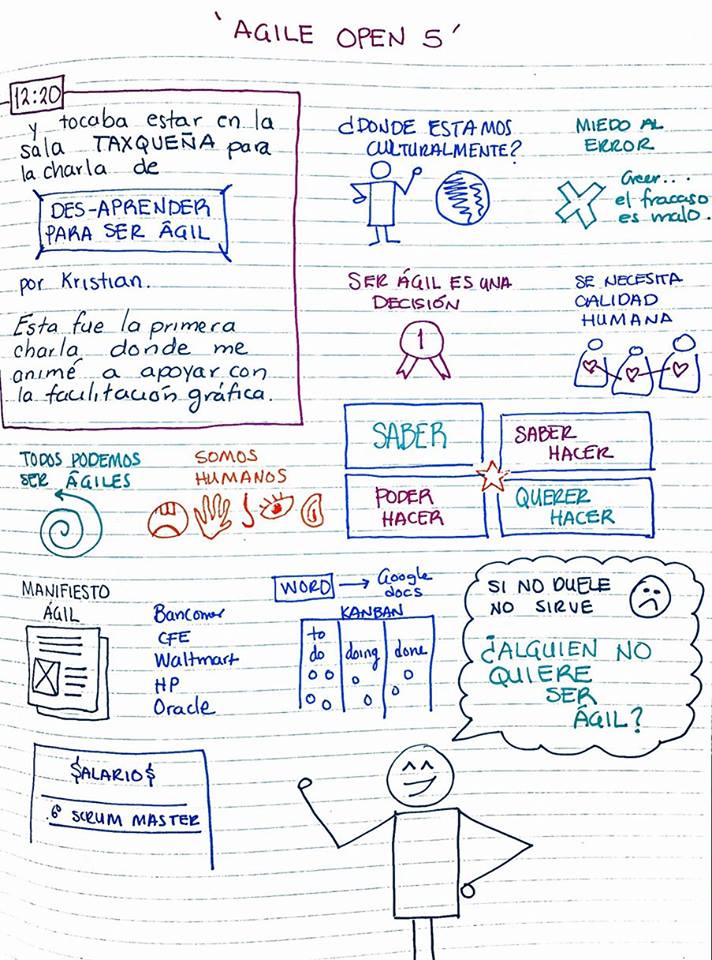 'AGILE OPEN 5'
12:20
y tocaba estar en la
sala TAXQUEÑA para
la charla de
DES-APRENDER
PARA SER ÁGIL
por Kristian.
Esta fue la primera
charla donde me
animé a apoyar con
la facilitación gráfica.
¿DONDE ESTAMOS
CULTURALMENTE?
MIEDO AL
ERROR
Creer...
el fracaso
es malo.
SER ÁGIL ES UNA
DECISIÓN
1
SE NECESITA
CALIDAD
HUMANA
SABER
SABER
HACER
PODER
HACER
QUERER
HACER
TODOS PODEMOS
SER ÁGILES
SOMOS
HUMANOS
MANIFIESTO
ÁGIL
Bancomer
CFE
Waltmart
HP
Oracle
WORD → Google
docs
KANBAN
to
do
doing
done
SI NO DUELE
NO SIRVE
¿ALGUIEN NO
QUIERE
SER
ÁGIL?
$ALARIO$
SCRUM MASTER